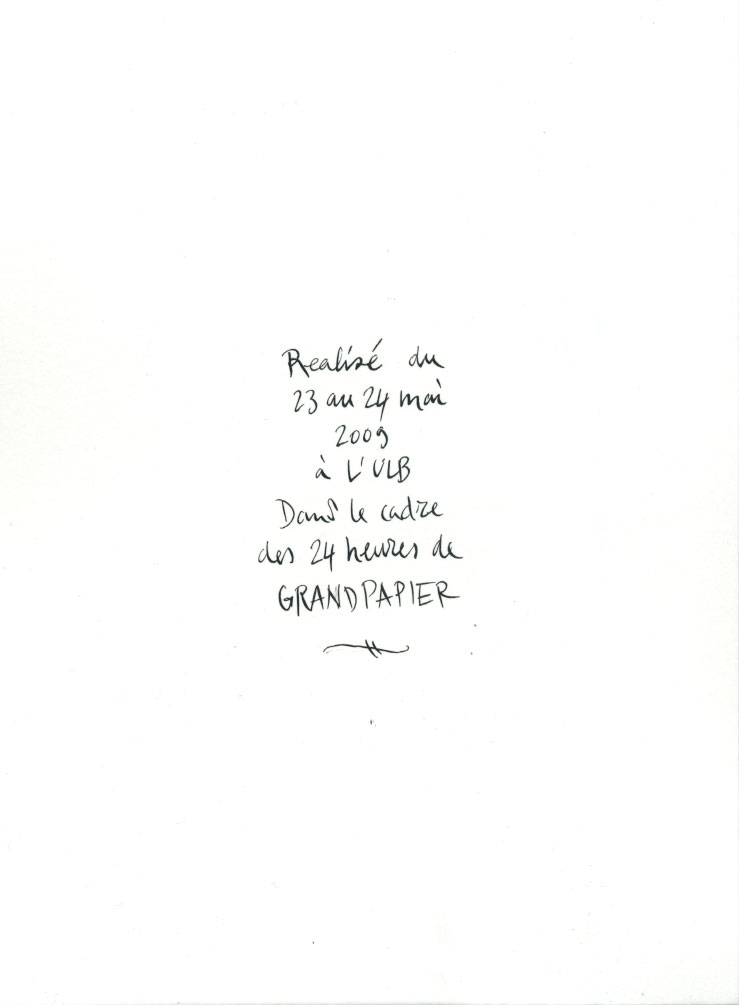 Realisé du
23 au 24 mai
2009
à L'ULB
Dans le cadre
des 24 heures de
GRANDPAPIER